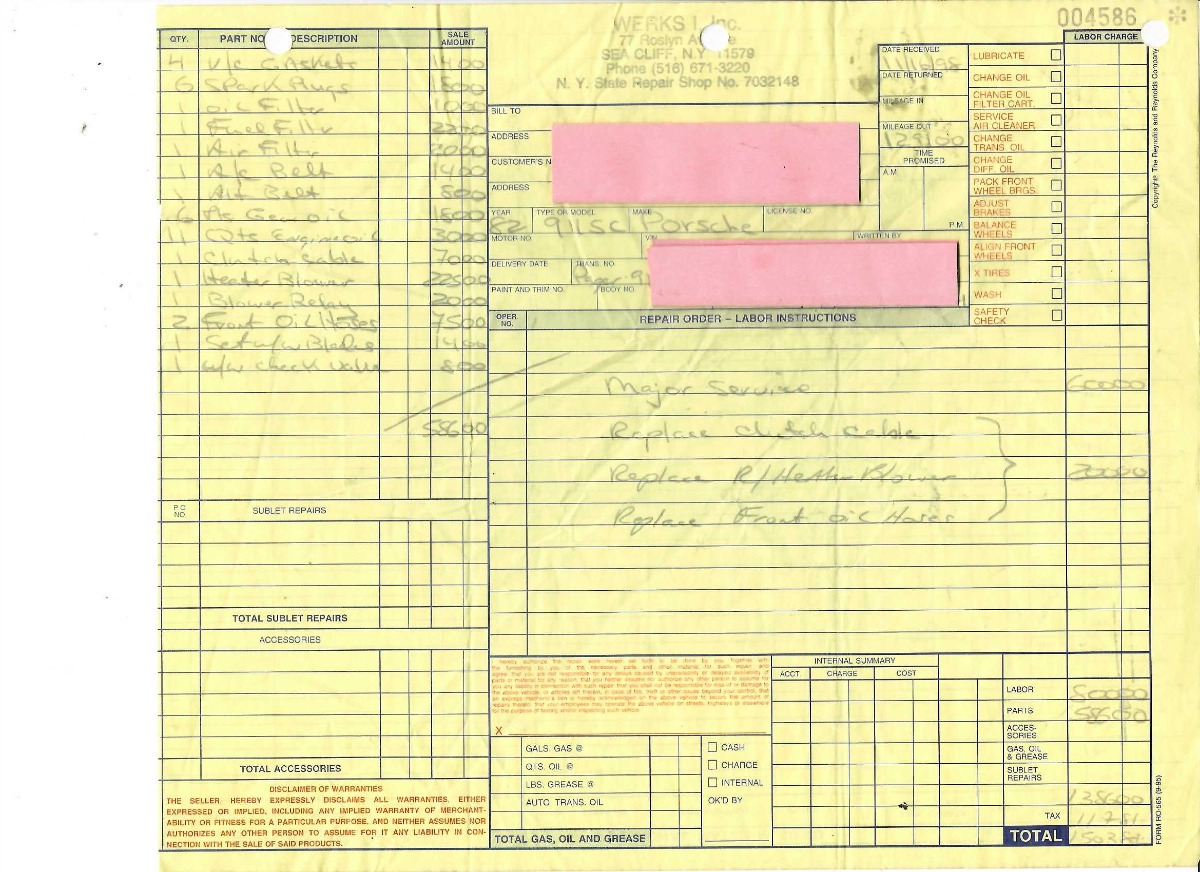 004586
WERKS I, Inc.
77 Roslyn Avenue
SEA CLIFF, N.Y. 11579
Phone (516) 671-3220
N. Y. State Repair Shop No. 7032148
QTY. PART NO. DESCRIPTION SALE AMOUNT
4 v/c Gaskets 1400
6 Spark Plugs 1800
1 oil Filter 1000
1 Fuel Filter
1 Air Filter 2000
1 A/c Belt 1400
1 Alt Belt 800
6 Pts Gear oil 1800
11 Qts Engine oil 3000
1 Clutch Cable 7000
1 Heater Blower 22500
1 Blower Relay 2000
2 Front Oil Hoses 7500
1 Set w/w Blades 1400
1 w/w check valve 800
58600
P.O. NO. SUBLET REPAIRS
TOTAL SUBLET REPAIRS
ACCESSORIES
TOTAL ACCESSORIES
DISCLAIMER OF WARRANTIES
THE SELLER, HEREBY EXPRESSLY DISCLAIMS ALL WARRANTIES, EITHER
EXPRESSED OR IMPLIED, INCLUDING ANY IMPLIED WARRANTY OF MERCHANT-
ABILITY OR FITNESS FOR A PARTICULAR PURPOSE, AND NEITHER ASSUMES NOR
AUTHORIZES ANY OTHER PERSON TO ASSUME FOR IT ANY LIABILITY IN CON-
NECTION WITH THE SALE OF SAID PRODUCTS.
BILL TO
ADDRESS
CUSTOMER'S N
ADDRESS
YEAR TYPE OR MODEL MAKE LICENSE NO.
82 911SC Porsche
MOTOR NO. VIN WRITTEN BY
DELIVERY DATE TRANS. NO.
PAINT AND TRIM NO. BODY NO.
DATE RECEIVED
11/16/98
DATE RETURNED
MILEAGE IN
MILEAGE OUT
TIME PROMISED
A.M.
P.M.
LABOR CHARGE
LUBRICATE
CHANGE OIL
CHANGE OIL FILTER CART.
SERVICE AIR CLEANER
CHANGE TRANS. OIL
CHANGE DIFF. OIL
PACK FRONT WHEEL BRGS.
ADJUST BRAKES
BALANCE WHEELS
ALIGN FRONT WHEELS
X TIRES
WASH
SAFETY CHECK
OPER. NO. REPAIR ORDER – LABOR INSTRUCTIONS
Major Service 60000
Replace clutch cable
Replace R/Heater Blower 20000
Replace Front oil Hoses
X
GALS. GAS @
QTS. OIL @
LBS. GREASE @
AUTO TRANS. OIL
TOTAL GAS, OIL AND GREASE
CASH
CHARGE
INTERNAL
OK'D BY
INTERNAL SUMMARY
ACCT CHARGE COST
LABOR 80000
PARTS 58600
ACCES- SORIES
GAS, OIL & GREASE
SUBLET REPAIRS
138600
TAX 11781
TOTAL 150381
Copyright The Reynolds and Reynolds Company
FORM RO-565 (8-95)